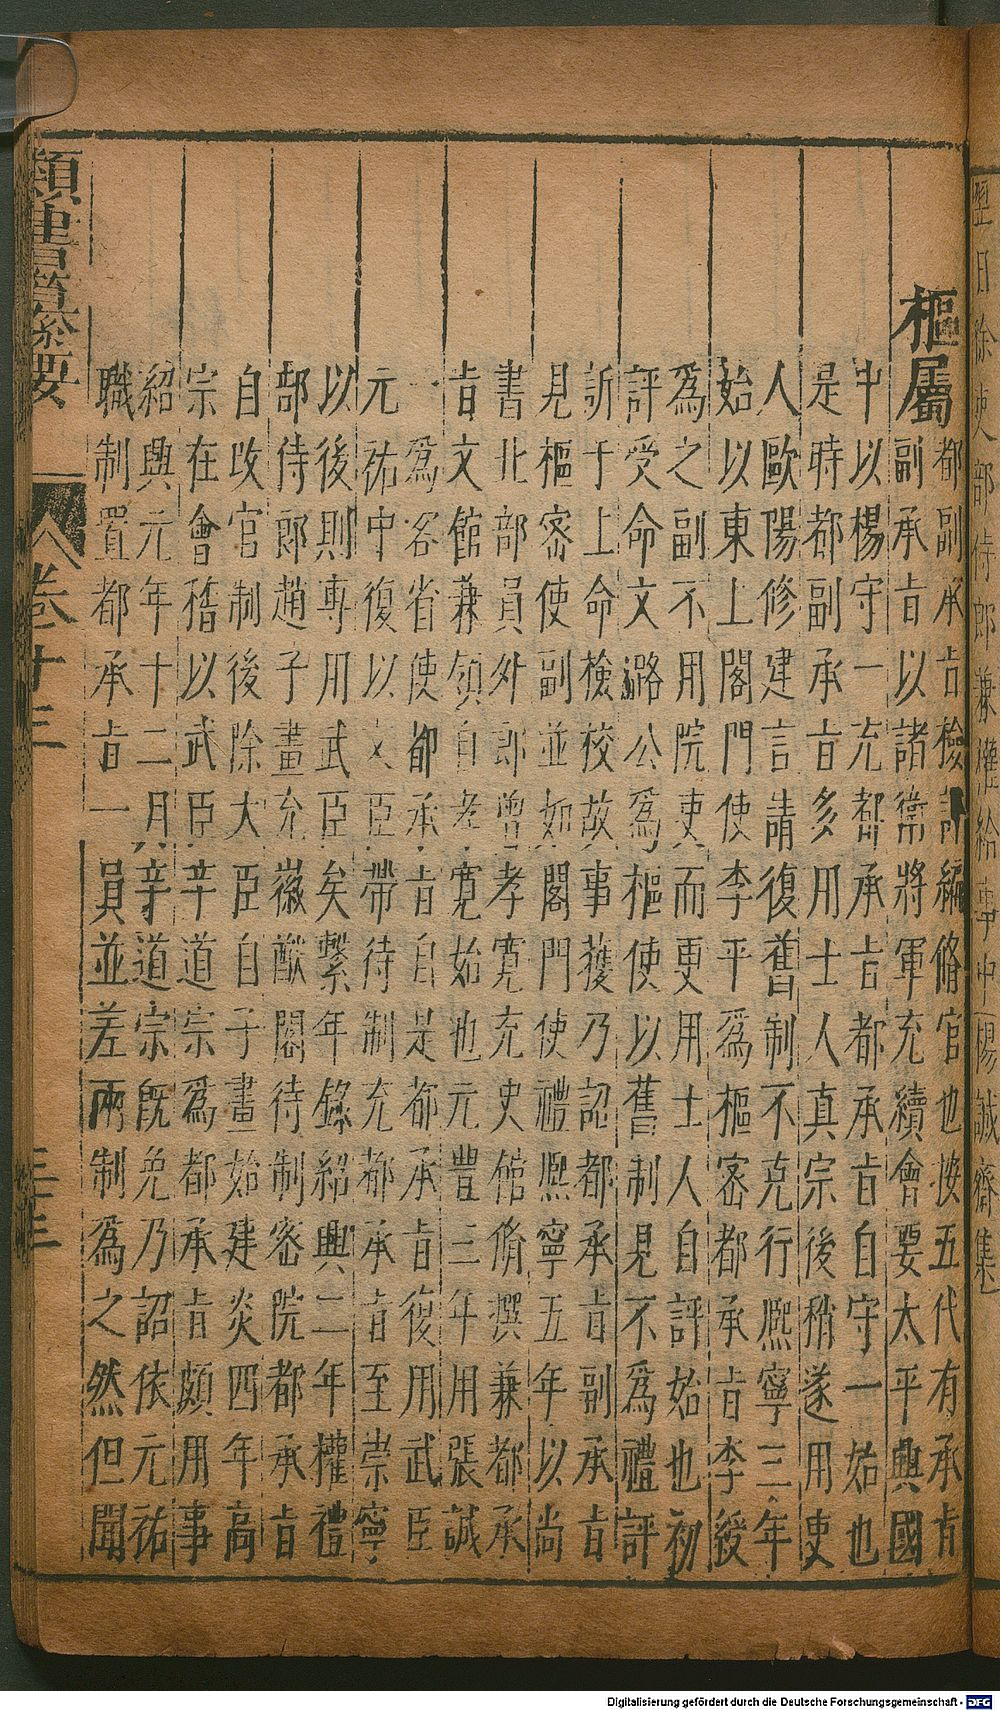 樞屬
都副承㫖檢討編脩官也按五代有承㫖
副承㫖以諸衛將軍充續會要太平興國
中以楊守一充都承㫖都承㫖自守一始也
是時都副承㫖多用士人真宗後稍遂用吏
人歐陽修建言請復舊制不克行熈寧三年
始以東上閣門使李平爲樞密都承㫖李綬
爲之副不用院吏而更用士人自評始也初
評受命文潞公爲樞使以舊制見不爲禮評
訴于上命檢校故事獲乃認都承㫖副承㫖
見樞密使副並如閣門使禮熈寧五年以尚
書北部員外郎曾孝寬充史館脩撰兼都承
㫖文館兼領自孝寛始也元豐三年用張誠
一爲客省使都承㫖自是都承㫖復用武臣
元祐中復以文臣帶待制充都承㫖至崇寧
以後則專用武臣矣繫年錄紹興二年權禮
部侍郎趙子畫充徽猷閣待制密院都承㫖
自改官制後除大臣自子畫始建炎四年高
宗在會稽以武臣辛道宗爲都承㫖頗用事
紹興元年十二月辛道宗旣免乃詔依元祐
職制置都承㫖一員並差兩制爲之然但聞
類書纂要
卷十三
三十三
翌日除吏部侍郎兼權給事中楊誠齋集
Digitalisierung gefördert durch die Deutsche Forschungsgemeinschaft - DFG